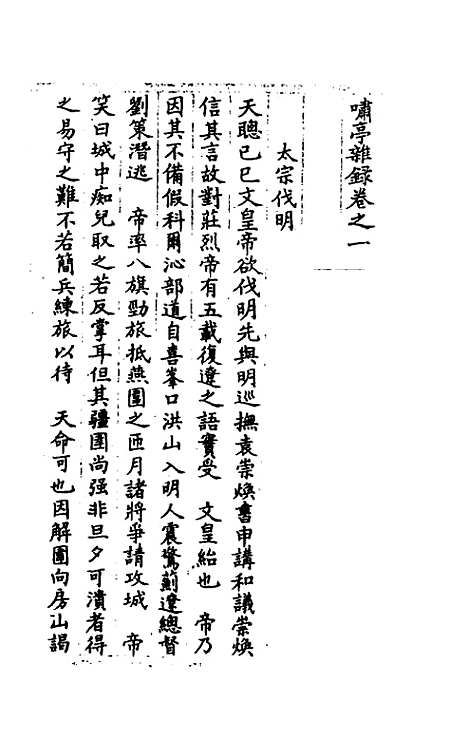 嘯亭雜録卷之一
太宗伐明
天聰己巳文皇帝欲伐明先與明巡撫袁崇煥書申講和議崇煥
信其言故對莊烈帝有五載復遼之語實受　文皇紿也　帝乃
因其不備假科爾沁部道自喜峯口洪山入明人震驚薊遼總督
劉策潛逃　帝率八旗勁旅抵燕圍之匝月諸將爭請攻城　帝
笑曰城中癡兒取之若反掌耳但其疆圉尚强非旦夕可潰者得
之易守之難不若簡兵練旅以待　天命可也因解圍向房山謁